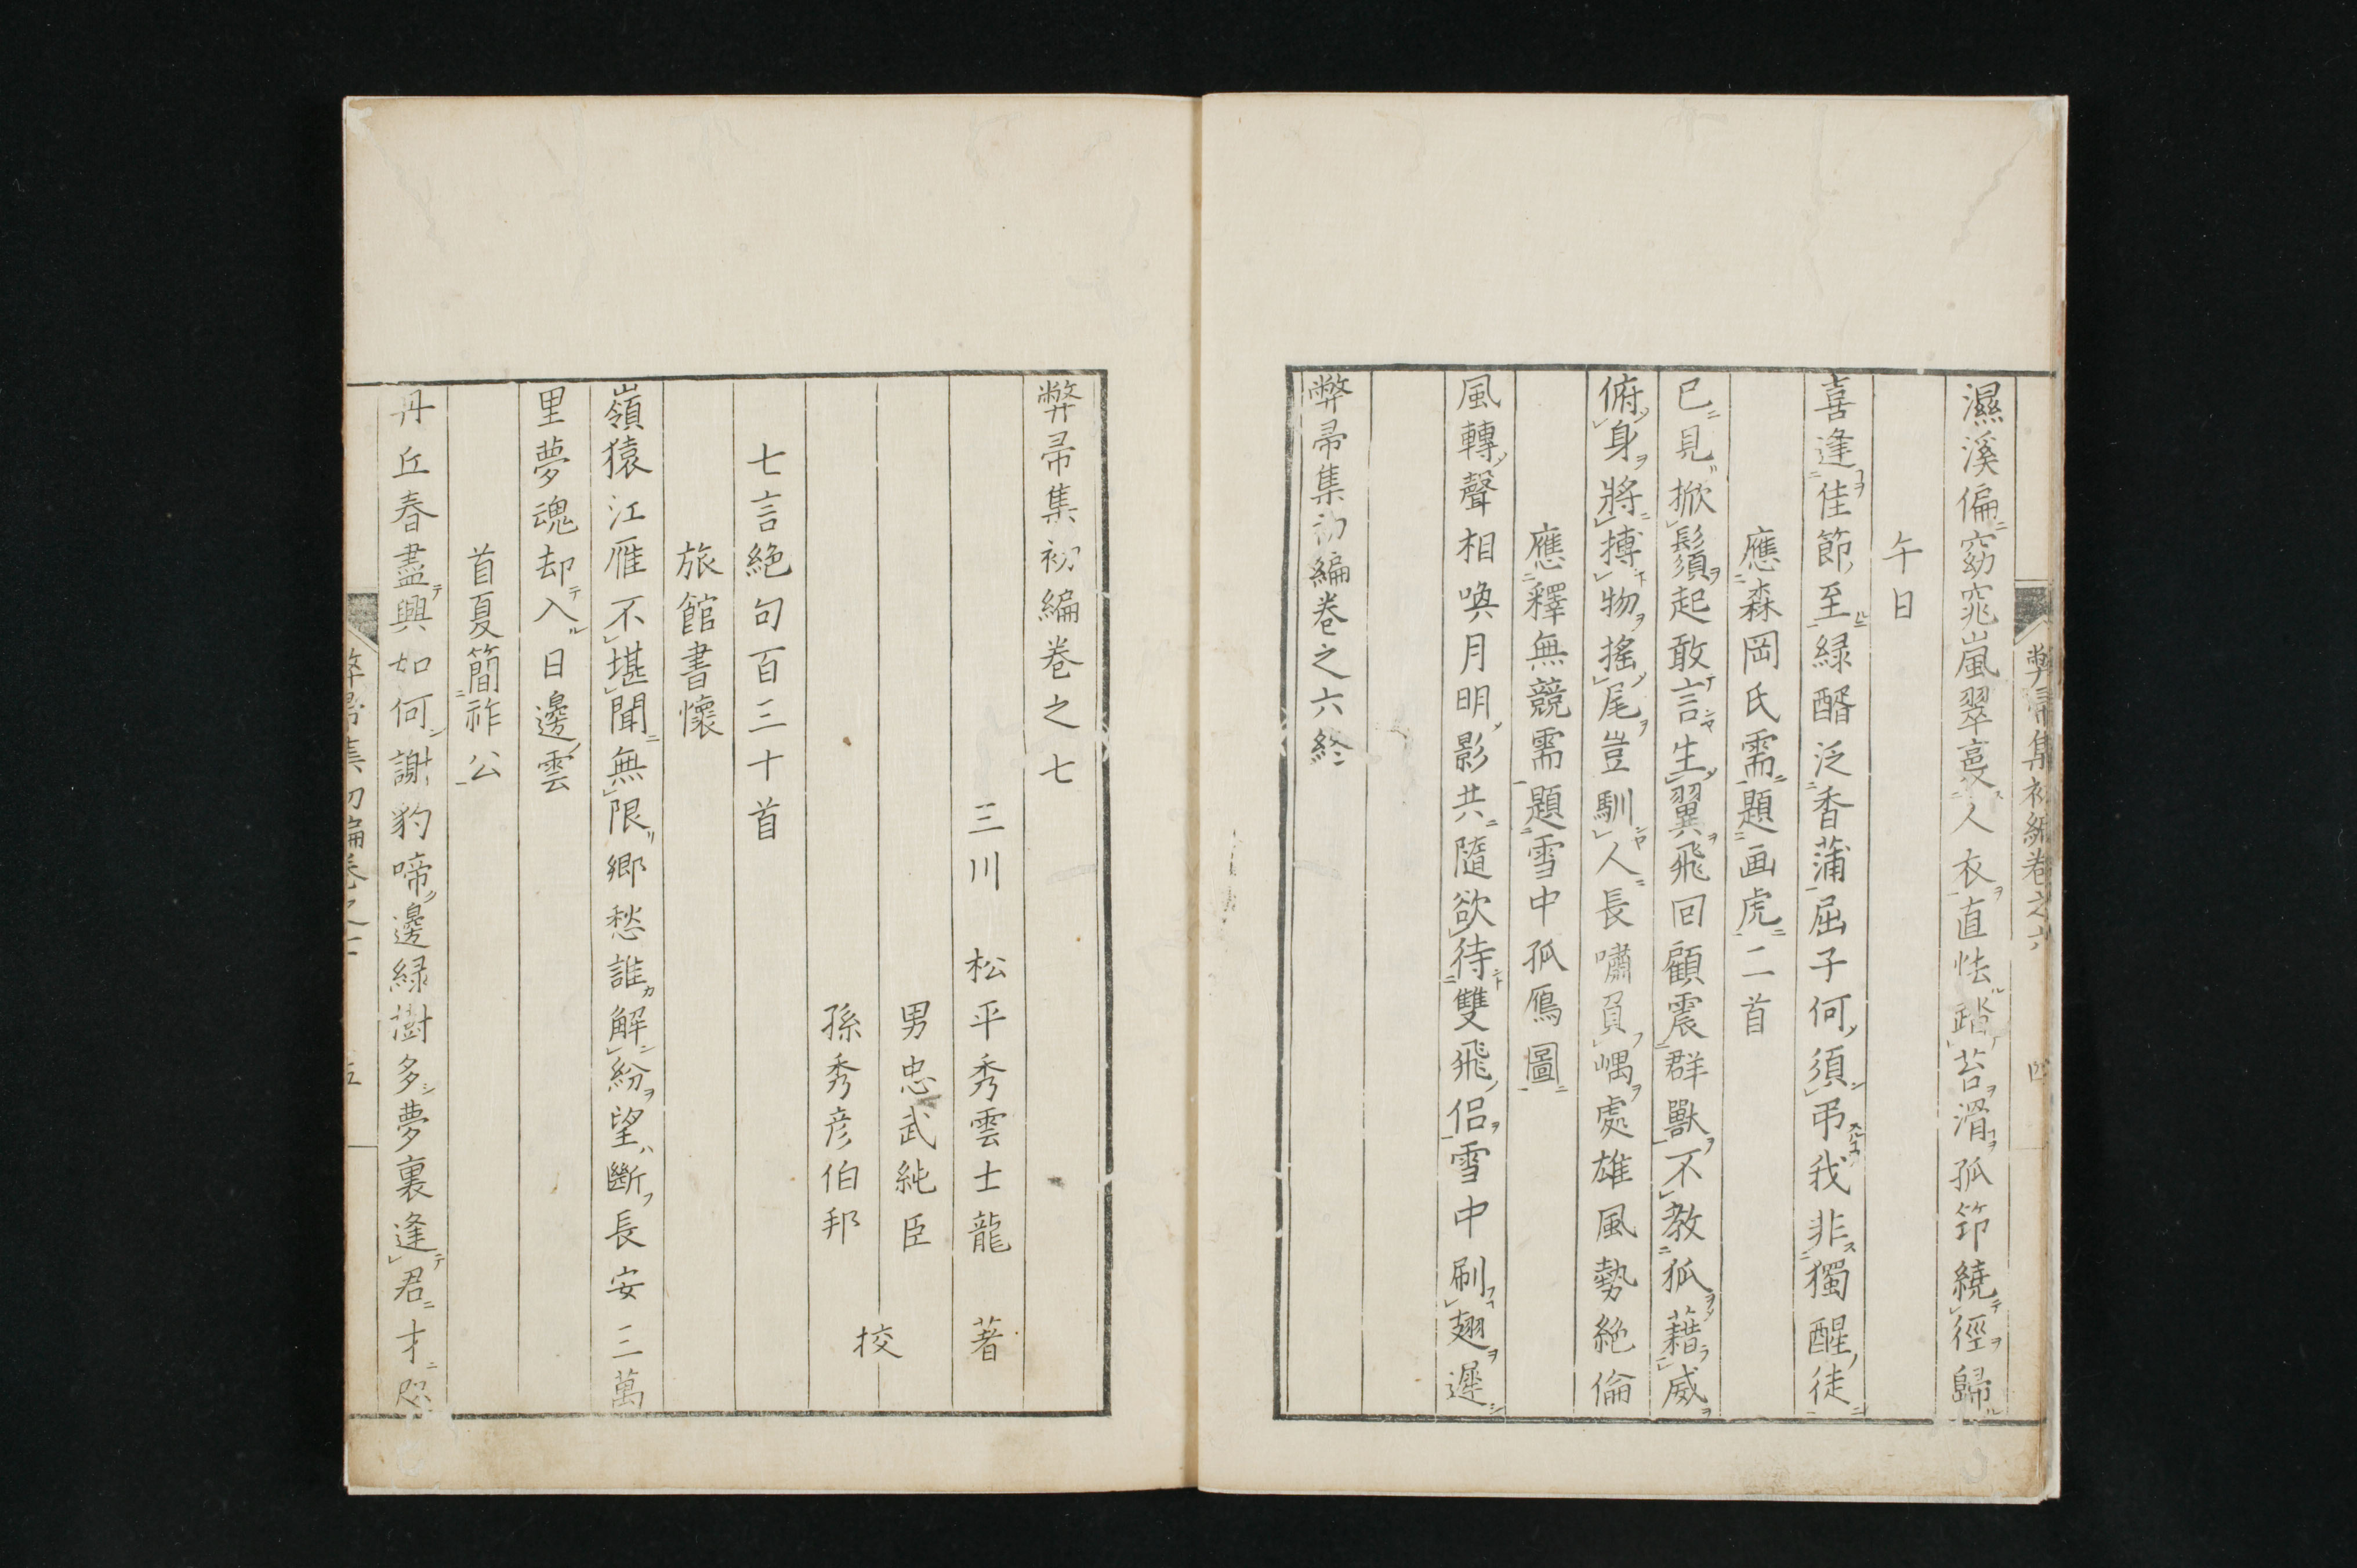 弊帚集初編卷之六 四
濕溪偏窈窕嵐翠藹人衣直怯踏苔滑孤筇繞徑歸
午日
喜逢佳節至緑醑泛香蒲屈子何須弔我非獨醒徒
應森岡氏需題画虎二首
已見掀鬚起敢言生翼飛回顧震群獸不教狐藉威
俯身將搏物搖尾豈馴人長嘯負嵎處雄風勢絶倫
應釋無競需題雪中孤鴈圖
風轉聲相喚月明影共隨欲待雙飛侣雪中刷翅遲
弊帚集初編卷之六終
弊帚集初編卷之七
三川 松平秀雲士龍 著
男忠武純臣
孫秀彦伯邦
校
七言絶句百三十首
旅館書懷
嶺猿江雁不堪聞無限鄉愁誰解紛望斷長安三萬
里夢魂却入日邊雲
首夏簡祚公
丹丘春盡興如何謝豹啼邊緑樹多夢裏逢君才咫
弊帚集初編卷之七 五